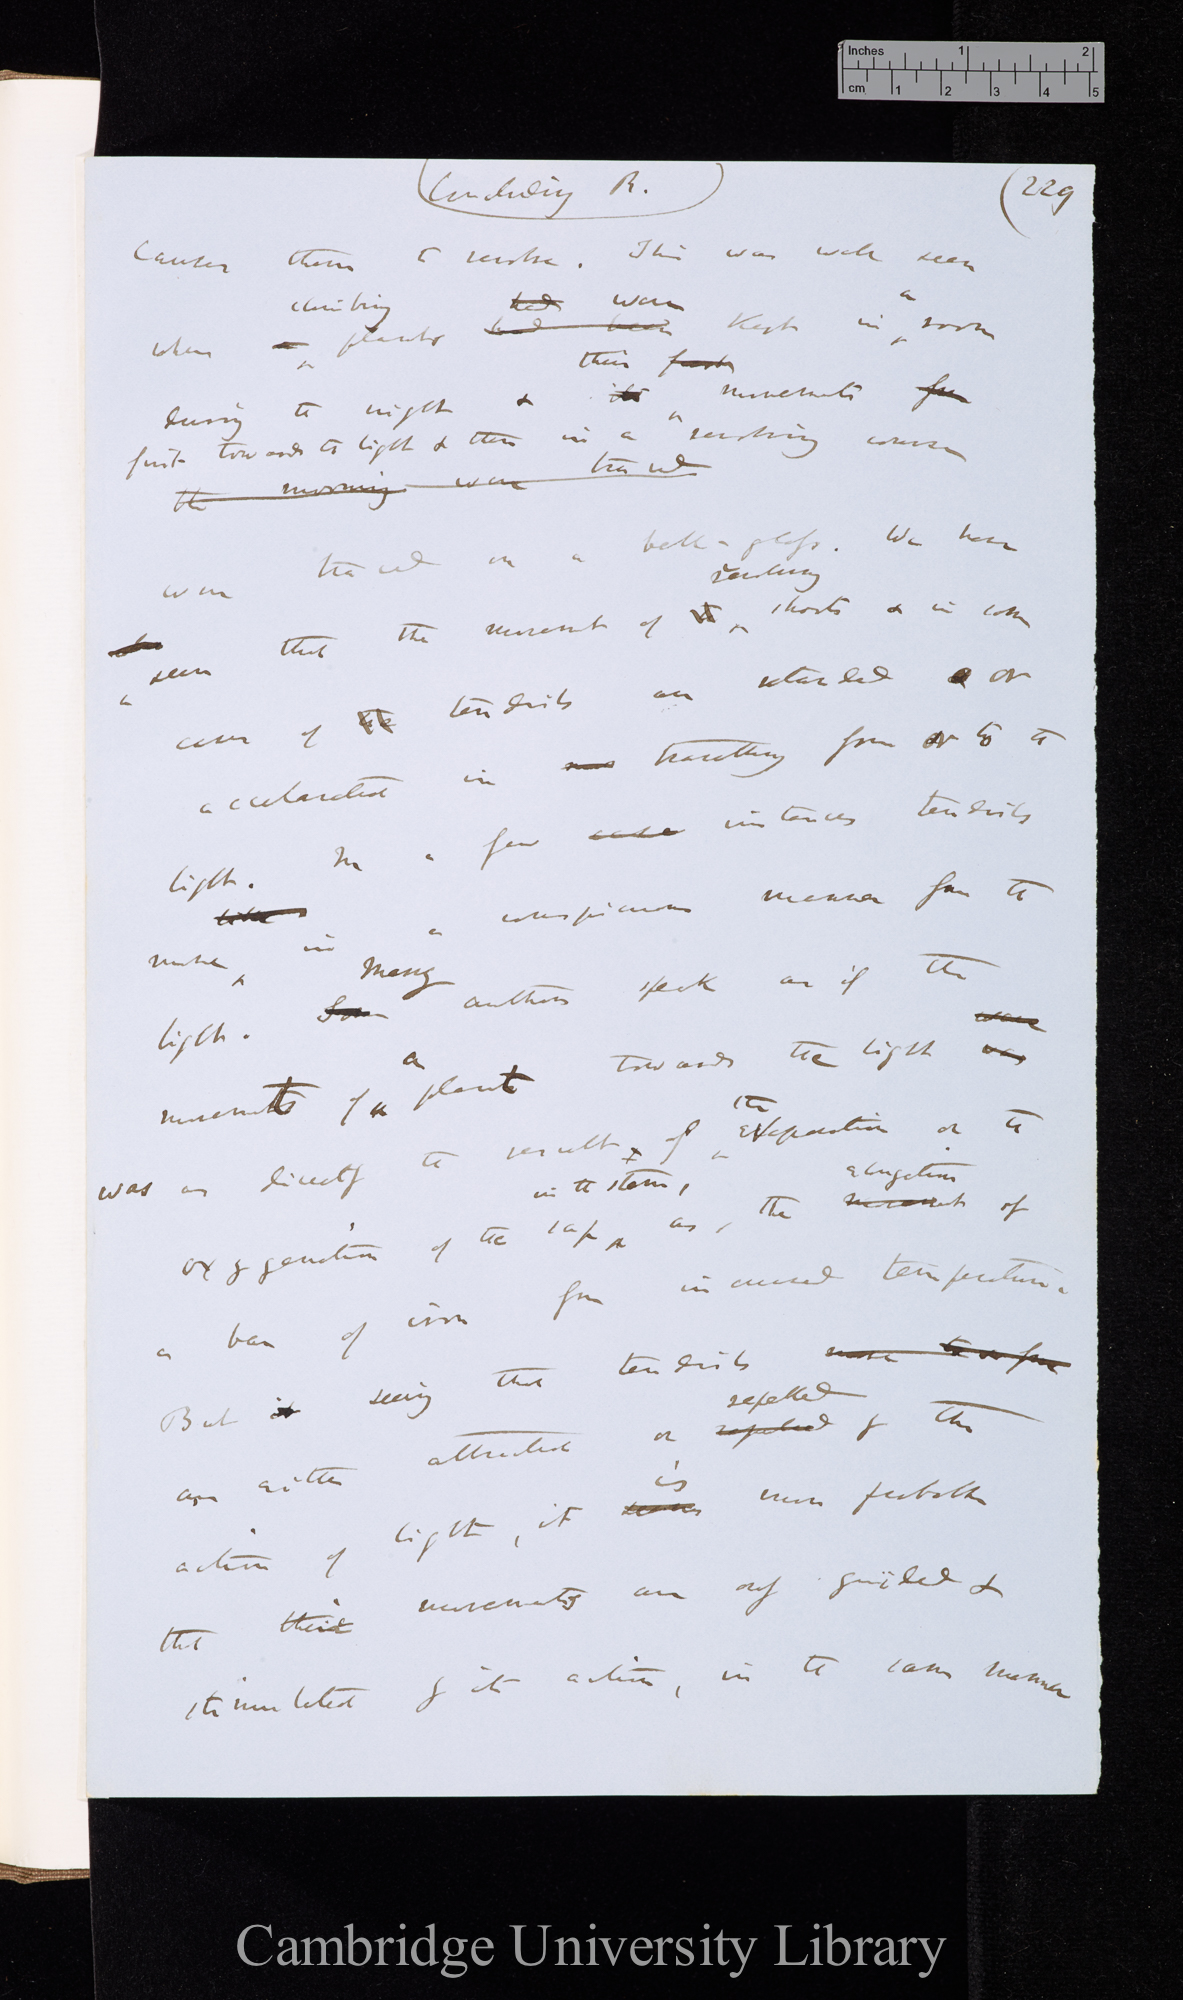 Inches 1 2
cm 1 2 3 4 5
Concluding R. (229
causes them to revolve. This was well seen
climbing had were a
when a plants had been kept in room
their first
during the night & its movements from
first towards the light & then in a revolving course
the morning were traced
were traced on a bell-glass. We have
revolving
also seen that the movement of the shoots & in some
cases of the tendrils are retarded or
accelerated in travelling from or to the
light. In a few cases instances tendrils
move in a conspicuous manner from the
Many
light. Some authors speak as if the
were
a
movement of a plant towards the light was
the
was as directly the result of evaporation or the
in the stem, elongation
oxygenation of the sap as, the movement of
a bar of iron from increased temperature
But it seeing that tendrils move to or from
repelled
are either attracted or repelled by the
is
action of light, it seems more probable
that their movements are only guided &
stimulated by its action, in the same manner
Cambridge University Library